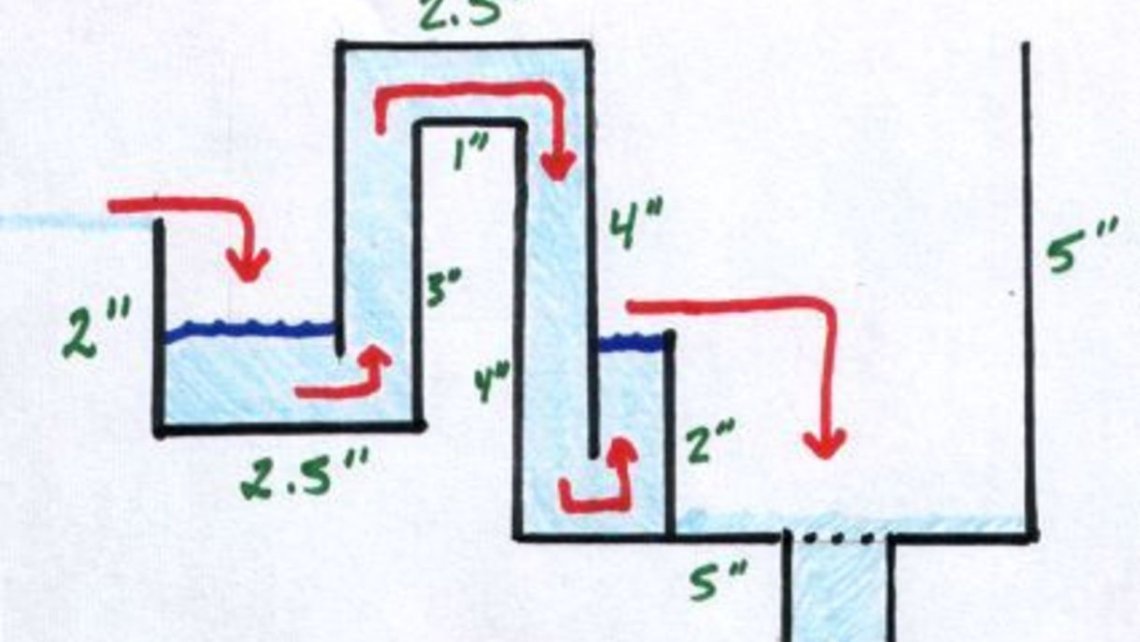 2.5"
1"
4"
5"
3"
2"
4"
2"
2.5"
5"